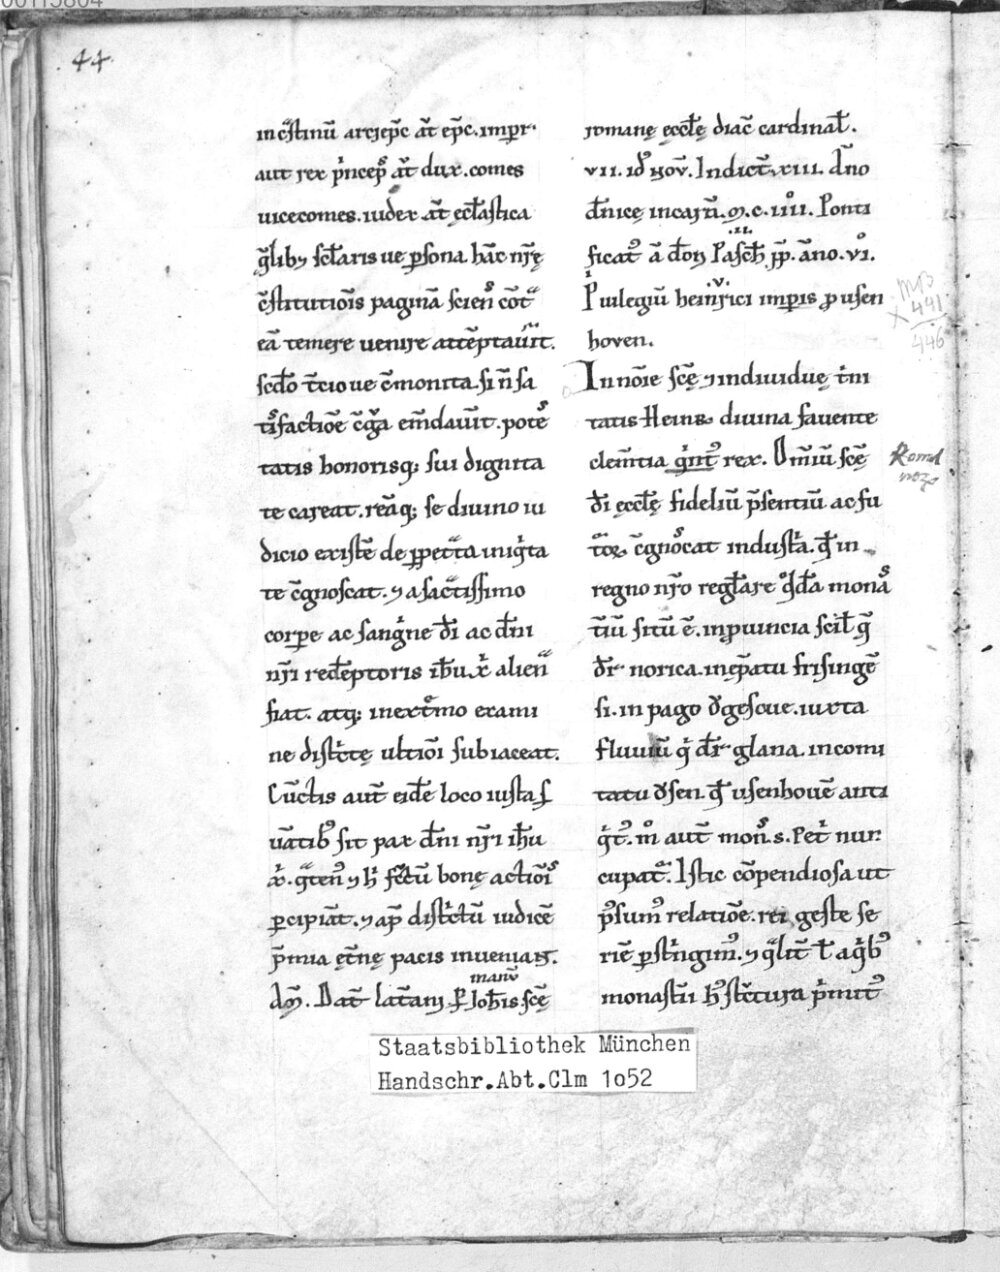 44.
in c̄stinū archiep̄c aut̄ ep̄c. imp̄r.
aut rex p̄ncep̄s aut̄ dux. comes
uicecomes. iudex aut̄ ęcl̄astica
q̄lib; sc̄laris ue p̄sona. hāc nr̄ę
c̄stitutiōis paginā scien̄ cōt̄
eā temere uenire attēptau̅it.
sc̄do t̄cio ue c̄monita. si n̄ sa
tisfactiōe c̄g̊a em̄dau̅it. potē
tatis honorisq; sui dignita
te careat. reāq; se diuino iu
dicio existē̄ de p̄pet̄ta iniq̇ta
te c̄gnoscat. ⁊ a sac̄tissimo
corp̄e ac sanḡne d̄i ac dn̄i
nr̄i red̄eptoris ih̄u x̄ı̇ alien̄
fiat. atq; in ext̄mo exami
ne distc̄tę ultiōi subiaceat.
Cūctis aut̄ eid̄e loco iusta s̄
uātib᾽ sit pax dn̄i nr̄i ih̄u
x̄ı̇. q̄ten᾽ ⁊ h̄ fc̄tū bonę actiōis
p̄cipiāt. ⁊ ap̄ distc̄tū iudicē
p̄mia ęt̄nę pacis inueniant.
manū
am̄. Dat̄ lat̄ani p̄ Ioh̄is sc̄ę
romanę eccl̄ę diac̄ cardinal̄.
vii. id᾽ nou̅. Indict̄. xiii. dn̄o
dn̄icę incarn̄. ꝏ. c. iiiı̊. Ponti
.ii.
ficat᾽ ā dōn Pasch̄ pp̄. āno. vı̊.
.v.
Pı̇uilegiū heinrici imp̄is p̄ usen
hoven.
In nōie sc̄ę ⁊ indiuiduę t̄ni
tatis Heinr̄. diuina fauente
clem̄tia q̇nt᾽ rex. Om̄iū sc̄ę
d̄i eccl̄ę fideliū p̄sentiū ac fu
t̄oꝝ c̄gnoscat industı̇a. q̄d in
regno nr̄o regl̄are q̊dd̄a monas
t̄iū sitū ē. in p̄uincia scil̄ q̄
d̄r norica. in ep̄atu frisingē
si. in pago d᾽gescue. iuxta
fluuiū q̇ d̄r glana. in comi
tatu d᾽sen. q̄d usenhouē anti
q̇t᾽. m̊ aut̄ mon̄. s. Petı̇ nun
cupat᾽. Istic cōpendiosa ut
p̄sum᾽ relatiōe. rei geste se
riē p̄stı̇ngim᾽. ⁊ q̄lit̄ t̄ a q̇b᾽
monast̄ii h᾽ st̄ctura p̄mit᾽
MB
x 441
446
Staatsbibliothek München
Handschr.Abt.Clm 1o52